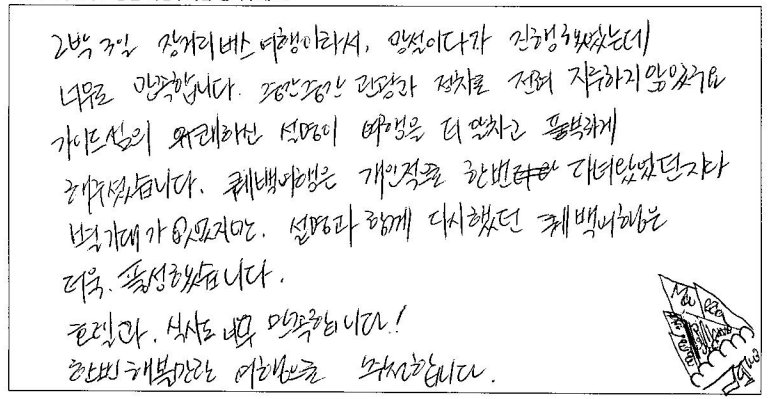 2박 3일 장거리 버스여행이라서, 망설이다가 진행했었는데
너무 만족합니다. 중간중간 관광과 정차로 전혀 지루하지 않았구요
가이드님의 유쾌하신 설명이 여행을 더 알차고 풍부하게
해주셨습니다. 퀘백여행은 개인적으로 한번 다녀왔었던지라
별기대가 없었지만, 설명과 함께 다시했던 퀘백여행은
더욱, 풍성했습니다.
호텔과, 식사도 너무 만족합니다!
한번 해볼만한 여행으로 추천합니다.